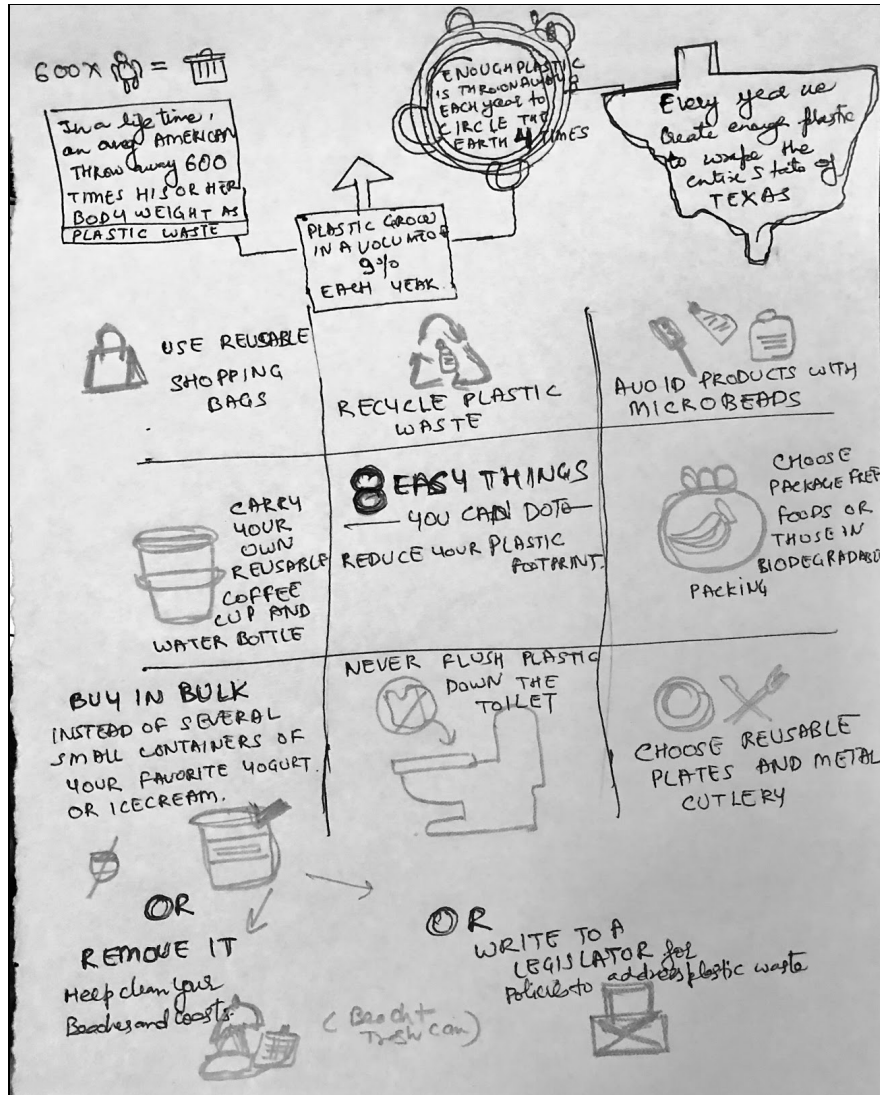 600x =
In a life time,
an avg AMERICAN
THROW away 600
TIMES HIS OR HER
BODY WEIGHT AS
PLASTIC WASTE
PLASTIC GROW
IN A VOLUME OF
9%
EACH YEAR.
ENOUGH PLASTIC
IS THROWN AWAY
EACH year to
CIRCLE THE
EARTH 4 TIMES
Every year we
Create enough plastic
to wrape the
entire State of
TEXAS
USE REUSABLE
SHOPPING
BAGS
RECYCLE PLASTIC
WASTE
AVOID PRODUCTS WITH
MICROBEADS
CARRY
YOUR
OWN
REUSABLE
COFFEE
CUP AND
WATER BOTTLE
8 EASY THINGS
YOU CAN DO TO
REDUCE YOUR PLASTIC
FOOTPRINT.
CHOOSE
PACKAGE FREE
FOODS OR
THOSE IN
BIODEGRADABLE
PACKING
BUY IN BULK
INSTEAD OF SEVERAL
SMALL CONTAINERS OF
YOUR FAVORITE YOGURT.
OR ICECREAM.
NEVER FLUSH PLASTIC
DOWN THE
TOILET
CHOOSE REUSABLE
PLATES AND METAL
CUTLERY
OR
REMOVE IT
Help clean your
Beaches and coasts.
(Beach +
Trash can)
OR
WRITE TO A
LEGISLATOR for
policies to address plastic waste